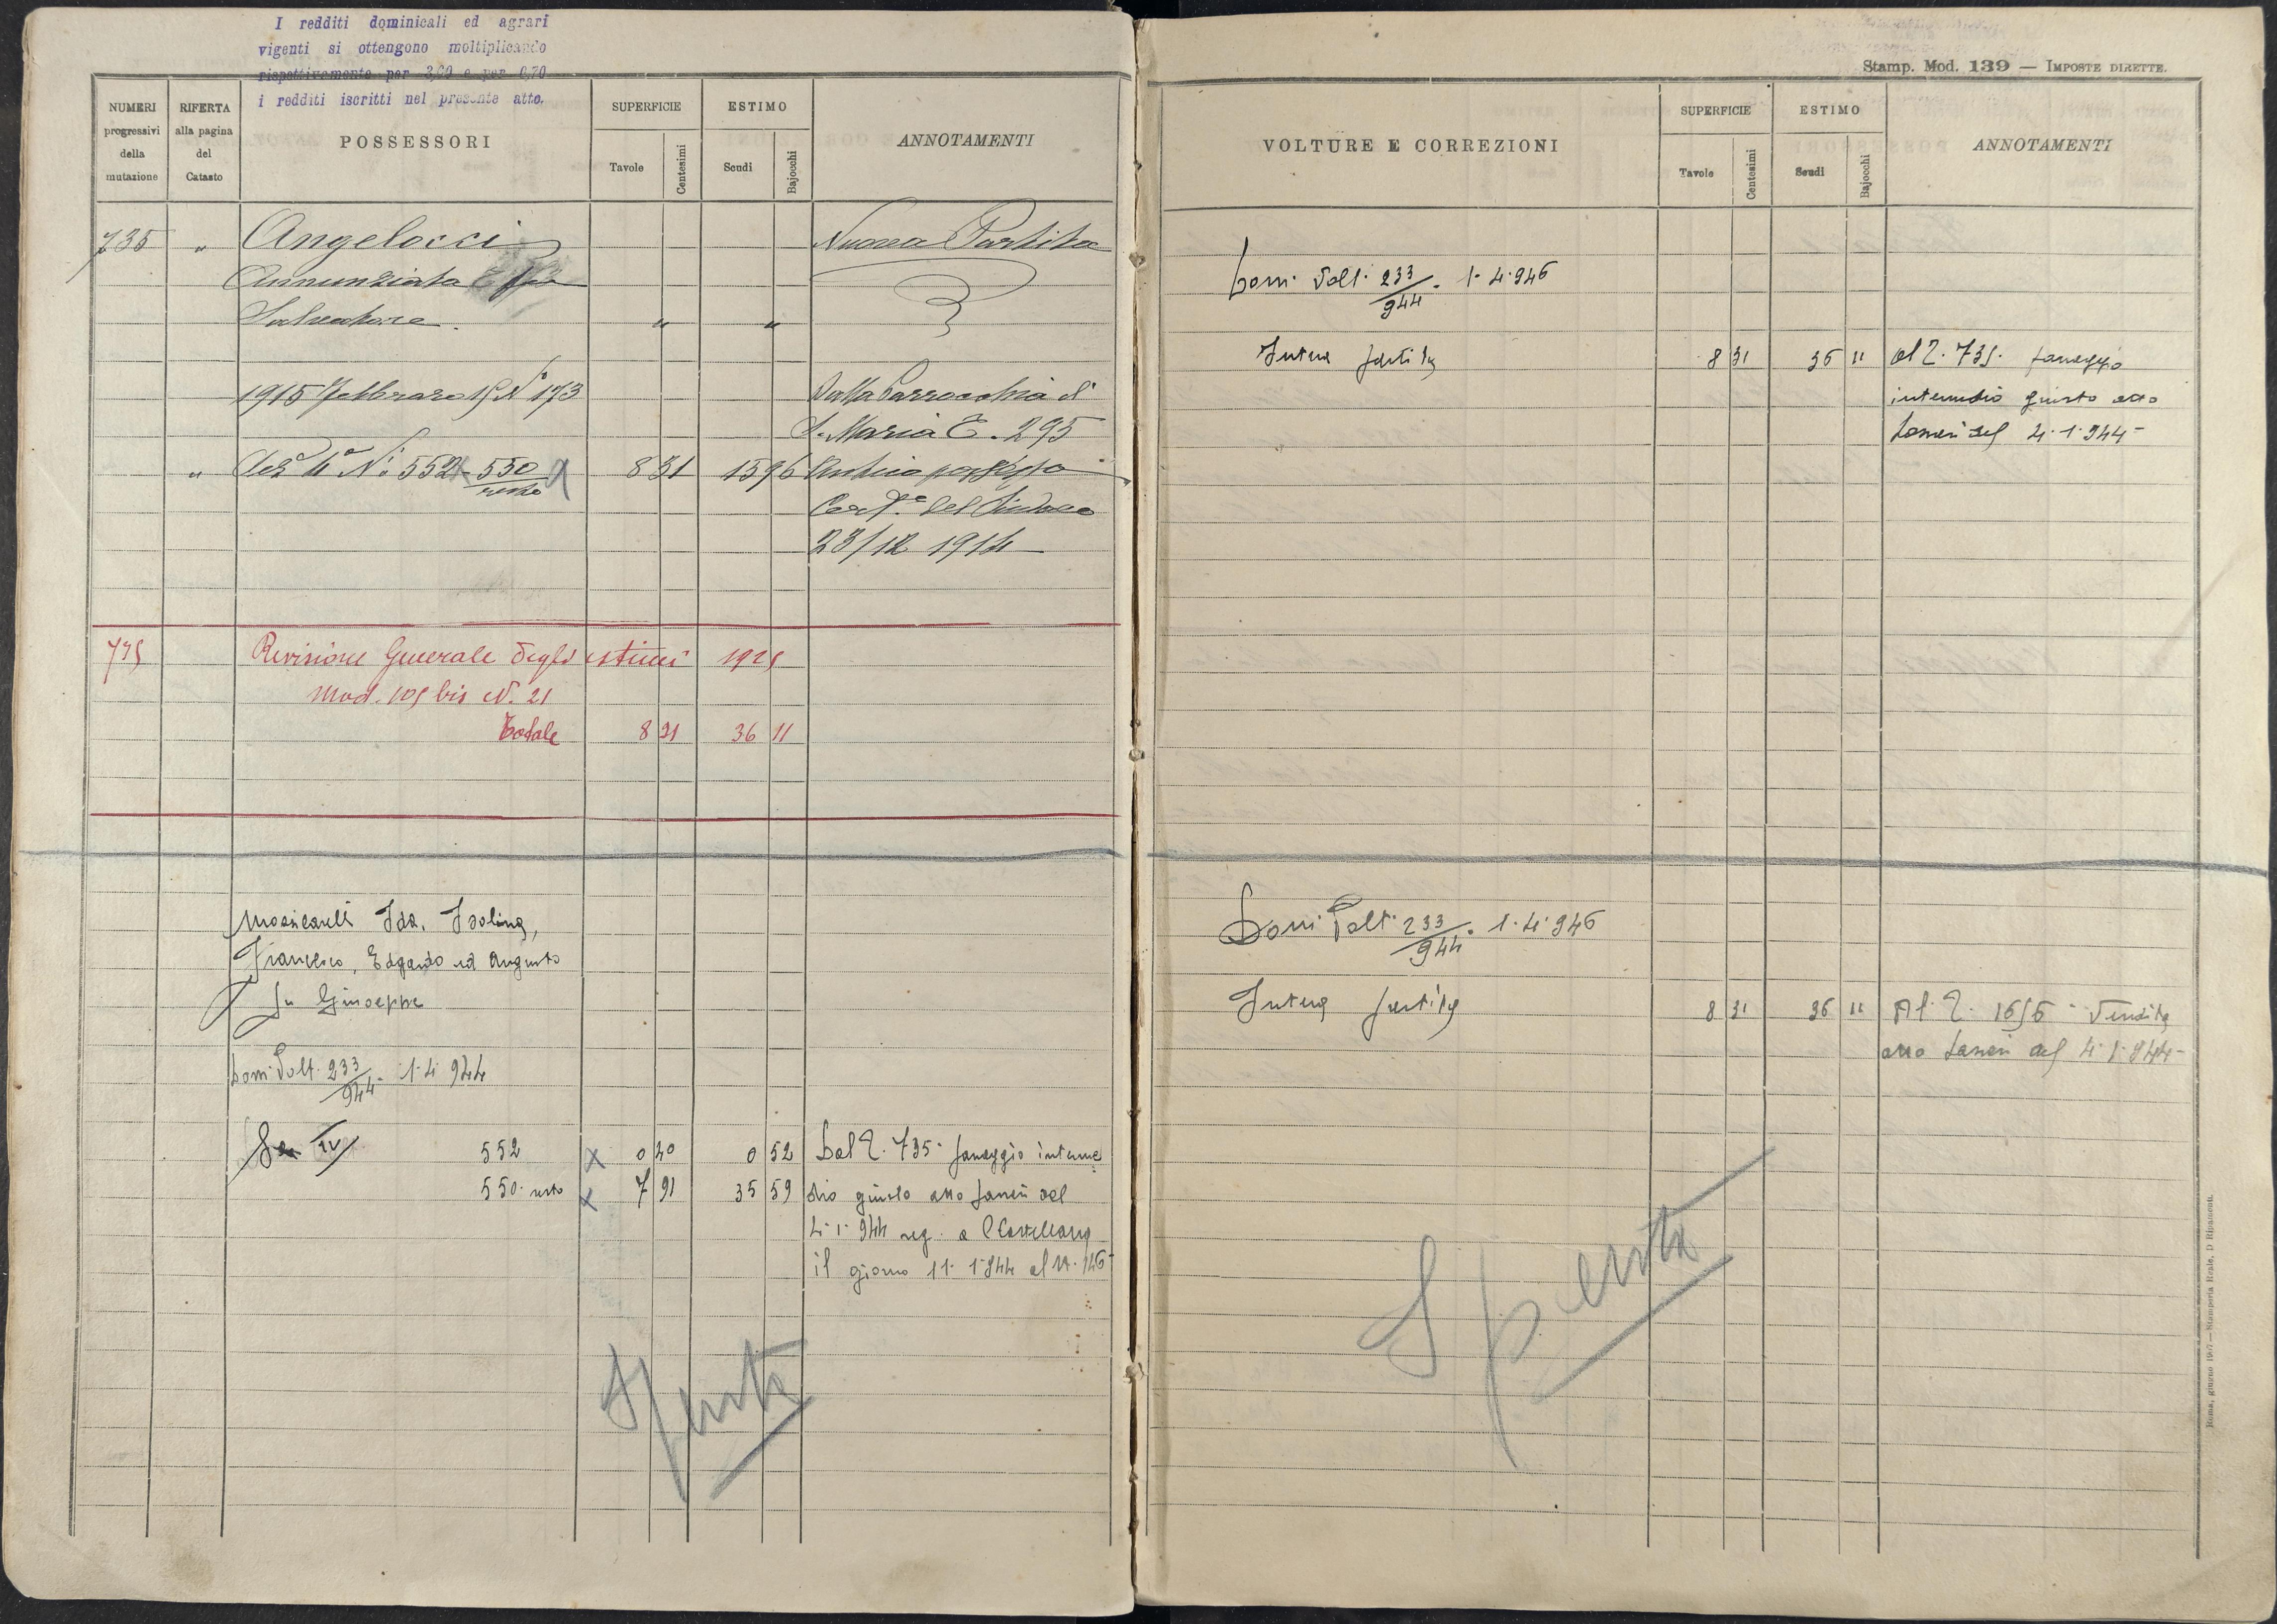 I redditi dominicali ed agrari
vigenti si ottengono moltiplicando
rispettivamente per 3,60 e per 0,70
i redditi iscritti nel presente atto.
NUMERI
progressivi
della
mutazione
RIFERTA
alla pagina
del
Catasto
POSSESSORI
SUPERFICIE
Tavole
Centesimi
ESTIMO
Scudi
Bajocchi
ANNOTAMENTI
735 " Angelocci Nuova Partita
Annunziata
Salvatore. " "
1915 Febbraro 15 N° 173 Dalla Parrocchia di
S. Maria C. 295
" Sez. 4ª N. 552 - 550 8 31 15 96 Antico possesso
resto
Cert.º del Sindaco
23/12 1914
735 Revisione Generale degli estimi 1925
Mod. 105 bis N. 21
Totale 8 31 36 11
Ida, Isolina,
Francesco, Edgardo ed Augusto
fu Giuseppe
Volt. 233/944 1-4 944
Sez IV 552 0 40 0 52 Dal 735 passaggio interme
550 resto 7 91 35 59 dio giusto atto del
4-1-944 reg. a
il giorno 11-1-944 al N. 146
Spenta
Stamp. Mod. 139 — IMPOSTE DIRETTE.
VOLTURE E CORREZIONI
SUPERFICIE
Tavole
Centesimi
ESTIMO
Scudi
Bajocchi
ANNOTAMENTI
Volt. 233/944. 1-4-946
Intera partita 8 31 36 11 al 735 passaggio
intermedio giusto atto
del 4-1-944-
Volt. 233/944. 1-4-946
Intera partita 8 31 36 11 Al 1656 Vendita
atto del 4-1-944-
Spenta
Roma, giugno 1907 — Stamperia Reale, D Ripamonti.